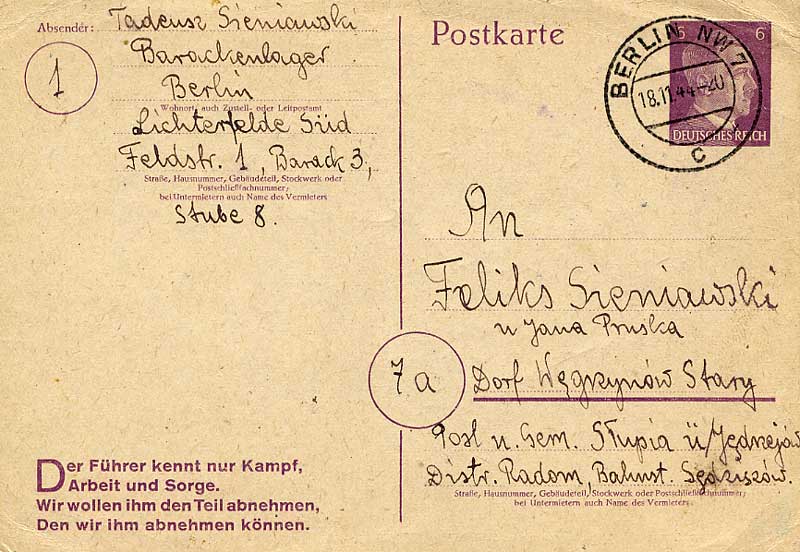 Absender: Tadeusz Sieniawski
1
Barackenlager
Berlin
Wohnort, auch Zustell- oder Leitpostamt
Lichterfelde Süd
Feldstr. 1, Barack 3,
Straße, Hausnummer, Gebäudeteil, Stockwerk oder
Postschließfachnummer;
bei Untermietern auch Name des Vermieters
Stube 8.
Der Führer kennt nur Kampf,
Arbeit und Sorge.
Wir wollen ihm den Teil abnehmen,
Den wir ihm abnehmen können.
Postkarte
BERLIN NW 7
18.11.44.-20
c
6 6
DEUTSCHES REICH
An
Feliks Sieniawski
u Jana Pruska
7a
Dorf Węgrzynów Stary
Post u. Gem. Słupia ü/Jędrzejów
Distr. Radom, Bahnst. Sędziszów.
Straße, Hausnummer, Gebäudeteil, Stockwerk oder Postschließfachnummer;
bei Untermietern auch Name des Vermieters